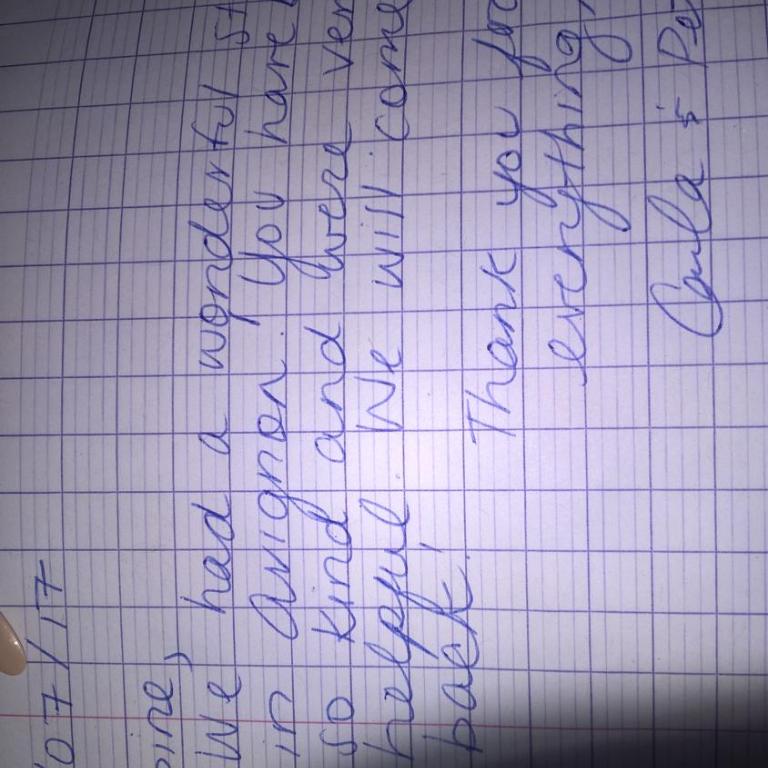 07/17
We had a wonderful
in Avignon. You have
so kind and were
helpful. We will come
back!
Thank you for
everything,
&